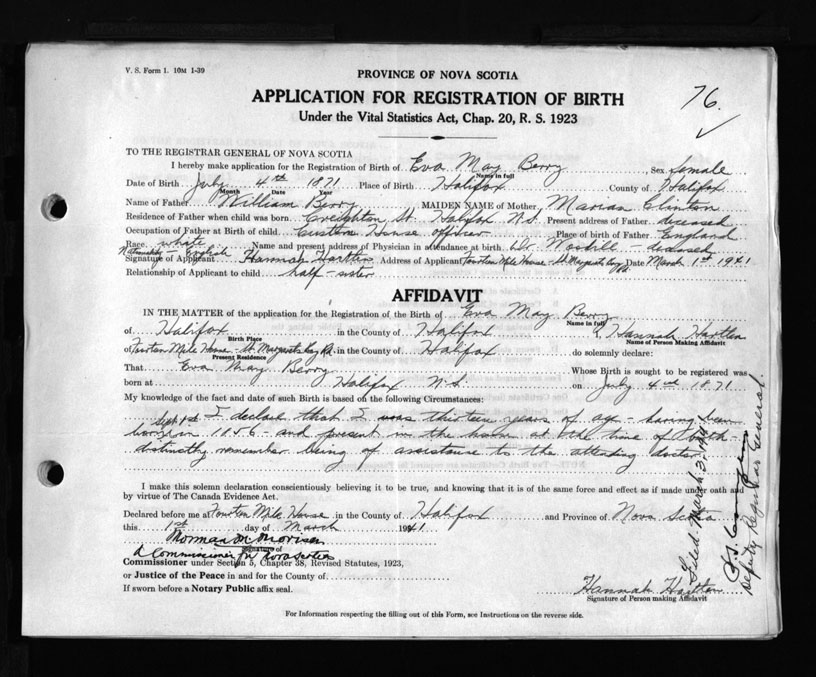 V. S. Form 1. 10M 1-39
PROVINCE OF NOVA SCOTIA
APPLICATION FOR REGISTRATION OF BIRTH
Under the Vital Statistics Act, Chap. 20, R. S. 1923
76.
TO THE REGISTRAR GENERAL OF NOVA SCOTIA
I hereby make application for the Registration of Birth of Eva May Berry Sex female
Name in full
Date of Birth July 4th 1871 Place of Birth Halifax County of Halifax
Month Date Year
Name of Father William Berry MAIDEN NAME of Mother Marian Clinton
Residence of Father when child was born Creighton St. Halifax N.S. Present address of Father deceased
Occupation of Father at Birth of child Custom House officer Place of birth of Father England
Race white Name and present address of Physician in attendance at birth Dr. deceased
Nationality - English
Signature of Applicant Hannah Hartlen Address of Applicant Fourteen Mile House - St Margarets Bay Rd Date March 1st 1941
Relationship of Applicant to child half-sister
AFFIDAVIT
IN THE MATTER of the application for the Registration of the Birth of Eva May Berry
Name in full
of Halifax in the County of Halifax I, Hannah Hartlen
Birth Place Name of Person Making Affidavit
of Fourteen Mile House - St. Margarets Bay Rd. in the County of Halifax do solemnly declare:
Present Residence
That Eva May Berry Whose Birth is sought to be registered was
born at Halifax N.S. on July 4th 1871.
My knowledge of the fact and date of such Birth is based on the following Circumstances:
Sept 1st
I declare that I was thirteen years of age - having been
born in 1856 - and present in the home at the time of birth -
distinctly remember being of assistance to the attending doctor.
I make this solemn declaration conscientiously believing it to be true, and knowing that it is of the same force and effect as if made under oath and
by virtue of The Canada Evidence Act.
Declared before me at Fourteen Mile House in the County of Halifax and Province of Nova Scotia
this 1st day of March 1941
Norman M Morison
A Commissioner for Nova Scotia
Signature of
Commissioner under Section 5, Chapter 38, Revised Statutes, 1923,
or Justice of the Peace in and for the County of
If sworn before a Notary Public affix seal.
Hannah Hartlen
Signature of Person making Affidavit
For Information respecting the filling out of this Form, see Instructions on the reverse side.
Filed March 3, 1941
Deputy Registrar General.